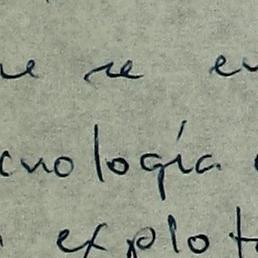 ue se en
cnología
explot